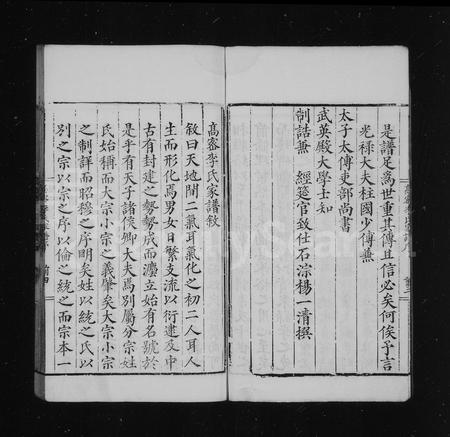 是譜足爲世重其傳且信必矣何俟予言
光祿大夫柱國少傅兼
太子太傅吏部尚書
武英殿大學士知
制誥兼 經筵官致仕石淙楊一清撰
高密李氏家譜敘
敘曰天地開二氣氣化之初二人耳人
生而形化焉男女日繁支流以衍建及中
古有封建之勢勢成而灋立始有名號於
是乎有天子諸侯卿大夫焉別屬分宗姓
氏始稱而大宗小宗之義肇矣大宗小宗
之制詳而昭穆之序明矣姓以統之氏以
別之宗以宗之序以倫之統之而宗本一